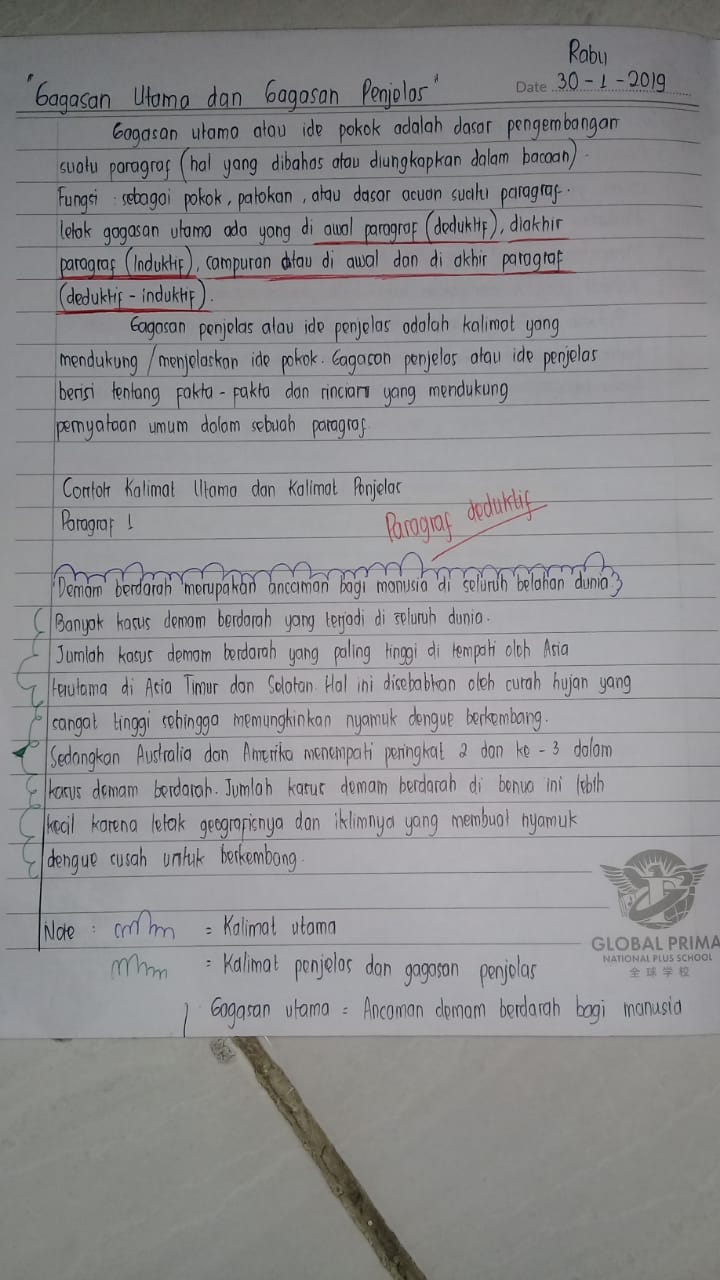 Rabu
Date 30-1-2019
"Gagasan Utama dan Gagasan Penjelas"
Gagasan utama atau ide pokok adalah dasar pengembangan
suatu paragraf (hal yang dibahas atau diungkapkan dalam bacaan).
Fungsi : sebagai pokok, patokan, atau dasar acuan suatu paragraf.
letak gagasan utama ada yang di awal paragraf (deduktif), diakhir
paragraf (Induktif), campuran atau di awal dan di akhir paragraf
(deduktif - induktif).
Gagasan penjelas atau ide penjelas adalah kalimat yang
mendukung /menjelaskan ide pokok. Gagasan penjelas atau ide penjelas
berisi tentang fakta-fakta dan rincian yang mendukung
pernyataan umum dalam sebuah paragraf.
Contoh Kalimat Utama dan Kalimat Penjelas
Paragraf 1
Paragraf deduktif
Demam berdarah merupakan ancaman bagi manusia di seluruh belahan dunia
Banyak kasus demam berdarah yang terjadi di seluruh dunia.
Jumlah kasus demam berdarah yang paling tinggi di tempati oleh Asia
terutama di Asia Timur dan Selatan. Hal ini disebabkan oleh curah hujan yang
sangat tinggi sehingga memungkinkan nyamuk dengue berkembang.
Sedangkan Australia dan Amerika menempati peringkat 2 dan ke-3 dalam
kasus demam berdarah. Jumlah kasus demam berdarah di benua ini lebih
kecil karena letak geografisnya dan iklimnya yang membuat nyamuk
dengue susah untuk berkembang.
Note : = Kalimat utama
= Kalimat penjelas dan gagasan penjelas
Gagasan utama = Ancaman demam berdarah bagi manusia
GLOBAL PRIMA
NATIONAL PLUS SCHOOL
全球学校